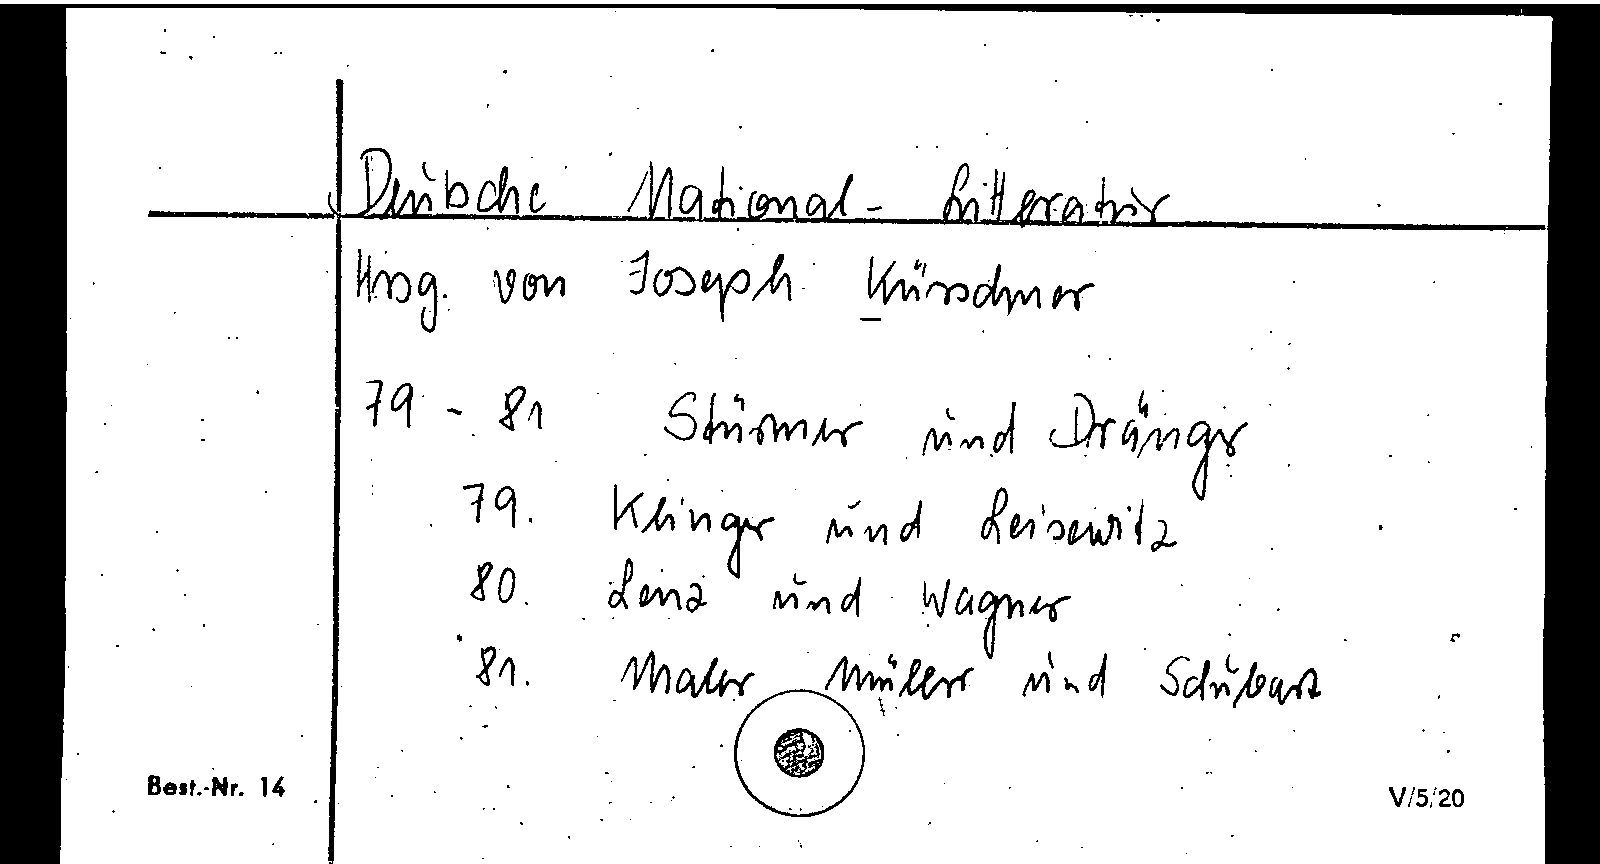 Deutsche National-Litteratur
Hrsg. von Joseph Kürschner
79 - 81 Stürmer und Dränger
79. Klinger und Leisewitz
80. Lenz und Wagner
81. Maler Müller und Schubart
Best.-Nr. 14
V/5/20